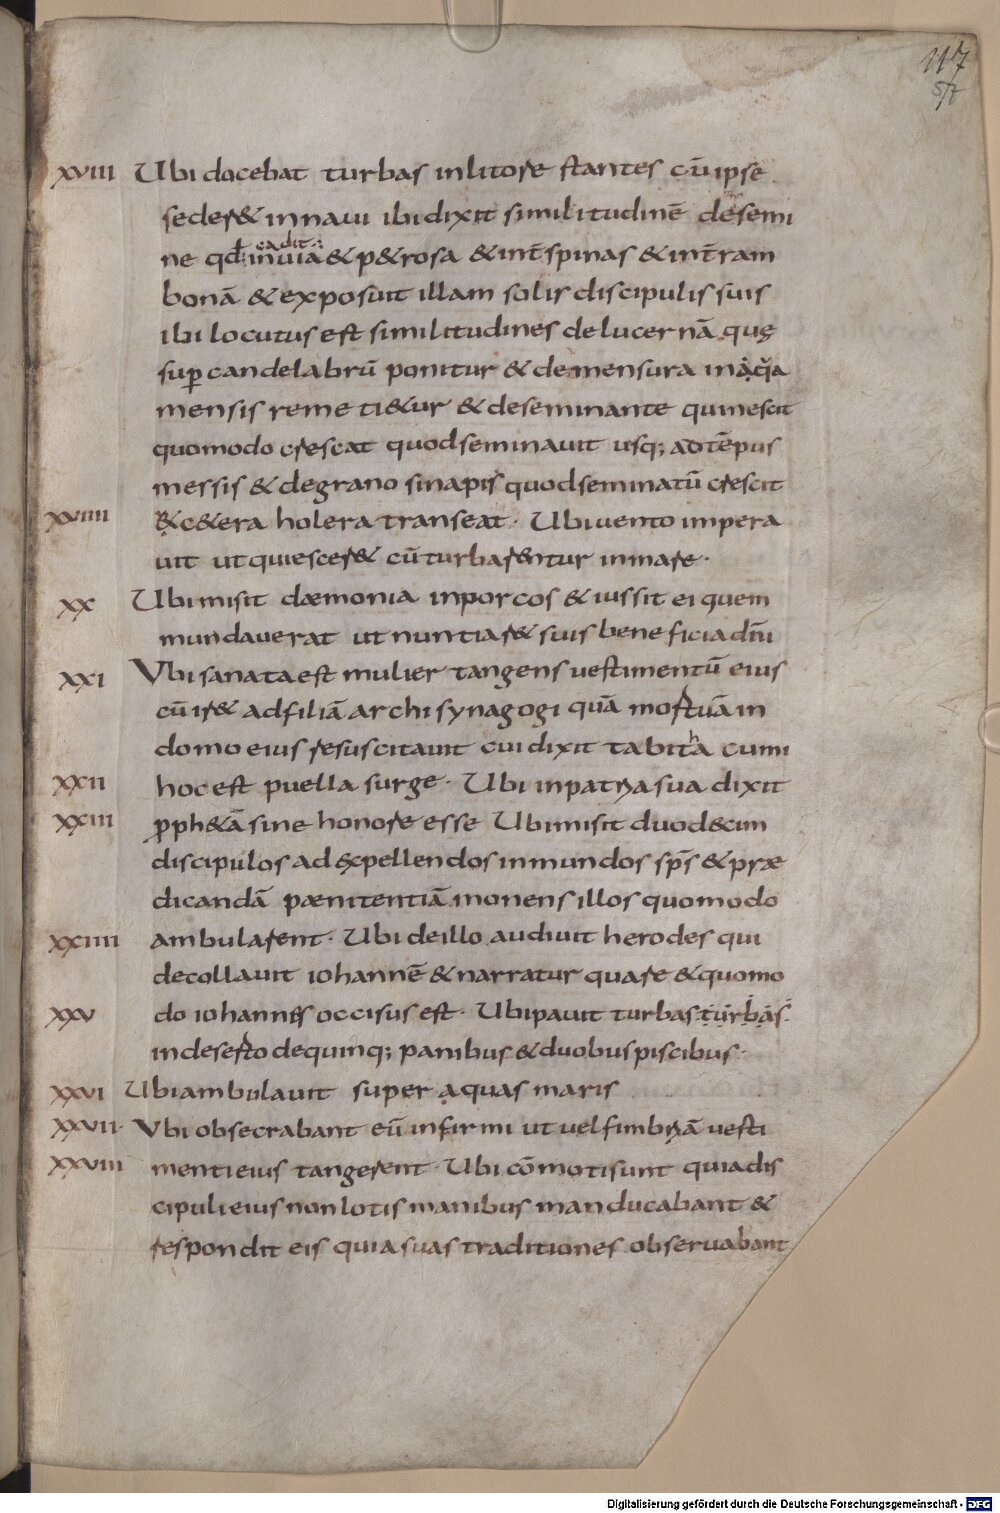 117
57
XVIII Ubi docebat turbas in litore stantes cū ipse
seder& in naui ibi dixit similitudinē de semi
ne qđ cadit in uiā & p&rosa & int̄ spinas & int̄ram
bonā & exposuit illam solis discipulis suis
ibi locutus est similitudines de lucernā quę
suꝑ candelabrū ponitur & de mensura in aq̄a
mensis remeti&ur & de seminante qui nescit
quomodo crescat quod seminauit usq; ad tēpus
messis & de grano sinapis quod seminatū crescit
XVIIII & c&era holera transeat · Ubi uento impera
uit ut quiescer& cū turbarentur in mare ·
XX Ubi misit dæmonia in porcos & iussit ei quem
mundauerat ut nuntiar& suis beneficia dn̄i
XXI Vbi sanata est mulier tangens uestimentū eius
cū ir& ad filiā archisynagogi quā mortuā in
domo eius resuscitauit cui dixit tabitha cumi
XXII hoc est puella surge · Ubi in patria sua dixit
XXIII ꝓph&ā sine honore esse Ubi misit duodecim
discipulos ad expellendos inmundos sp̄s & præ
dicandā pænitentiā monens illos quomodo
XXIIII ambularent · Ubi de illo audiuit herodes qui
decollauit iohannē & narratur quare & quomo
XXV do iohannes occisus est · Ubi pauit turbas turbas
in deserto de quinq; panibus & duobus piscibus ·
XXVI Ubi ambulauit super aquas maris
XXVII · Vbi obsecrabant eū infirmi ut uel fimbriā uesti
XXVIII menti eius tangerent · Ubi cōmoti sunt quia dis
cipuli eius non lotis manibus manducabant &
respondit eis quia suas traditiones obseruabant
Digitalisierung gefördert durch die Deutsche Forschungsgemeinschaft - DFG